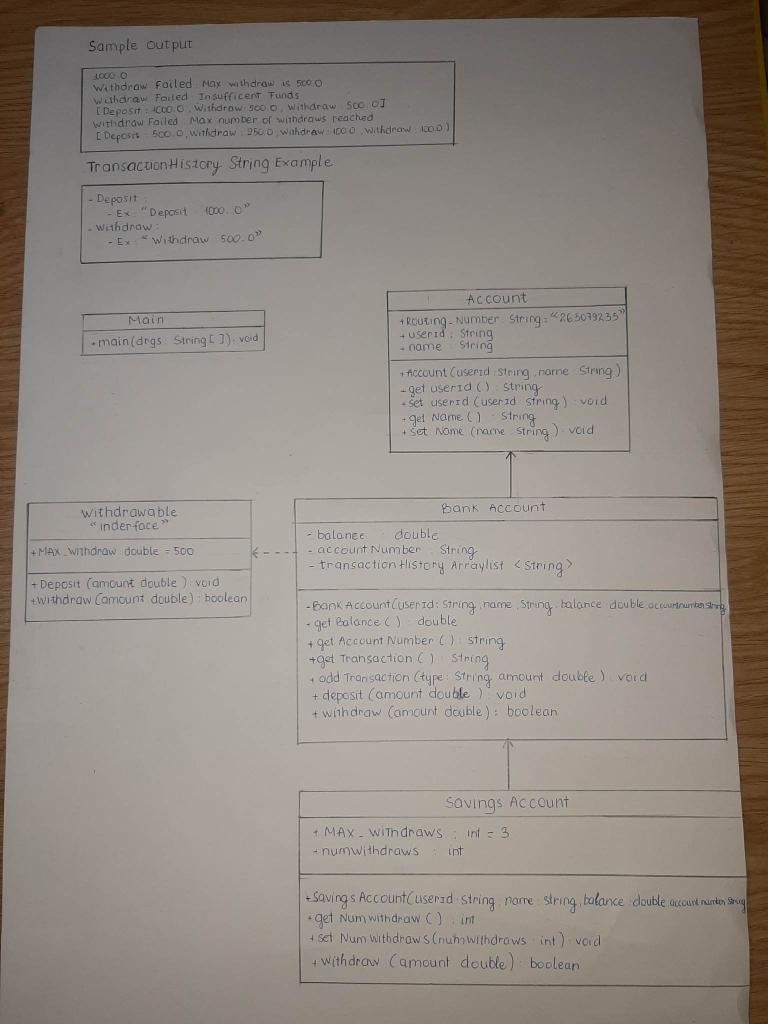 Sample Output
1000.0
Withdraw Failed: Max withdraw is 500.0
Withdraw Failed: Insufficent Funds
[Deposit: 1000.0, Withdraw: 500.0, Withdraw: 500.0]
Withdraw Failed: Max number of withdraws reached
[Deposit: 500.0, Withdraw: 250.0, Withdraw: 100.0, Withdraw: 100.0]
TransactionHistory String Example
- Deposit:
- Ex: "Deposit: 1000.0"
- Withdraw:
- Ex: "Withdraw: 500.0"
Main
+main(drgs: String[]): void
Account
+Routing_Number: String = "263079235"
+ userId: String
- name: String
+Account(userId: String, name: String)
- get userId(): String
+set userId(userId: string): void
- get Name(): String
+ set Name(name: String): void
Withdrawable
"inderface"
+MAX_withdraw: double = 500
+Deposit (amount double): void
+Withdraw (amount double): boolean
Bank Account
- balance: double
- accountNumber: String
- transactionHistory Arraylist <String>
-Bank Account(userId: String, name, String, balance: double accountnumber String
- get Balance(): double
+ get Account Number(): string
+get Transaction(): String
+ add Transaction (type: String amount double): void
+ deposit (amount double): void
+ withdraw (amount double): boolean
Savings Account
+ MAX_withdraws: int = 3
- numwithdraws: int
+Savings Account(userId: string, name: string, balance: double account number String
+ get Numwithdraw(): int
+ set Num withdraws(numwithdraws: int): void
+ withdraw (amount double): boolean